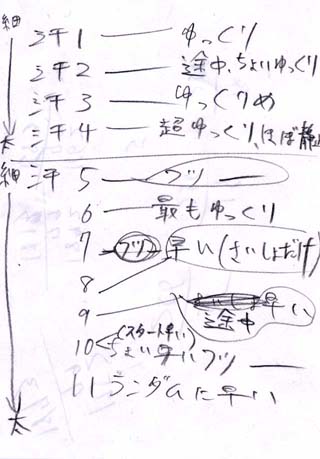 細
汗1 ― ゆっくり
汗2 ― 途中、ちょいゆっくり
汗3 ― ゆっくりめ
汗4 ― 超ゆっくり、ほぼ静止
太
細
汗5 ― フツー
6 ― 最もゆっくり
7 ― フツー 早い(さいしょだけ)
8
9 早い
途中
(スタート早い)
10 ちょい早いフツー
11 ランダムに早い
太